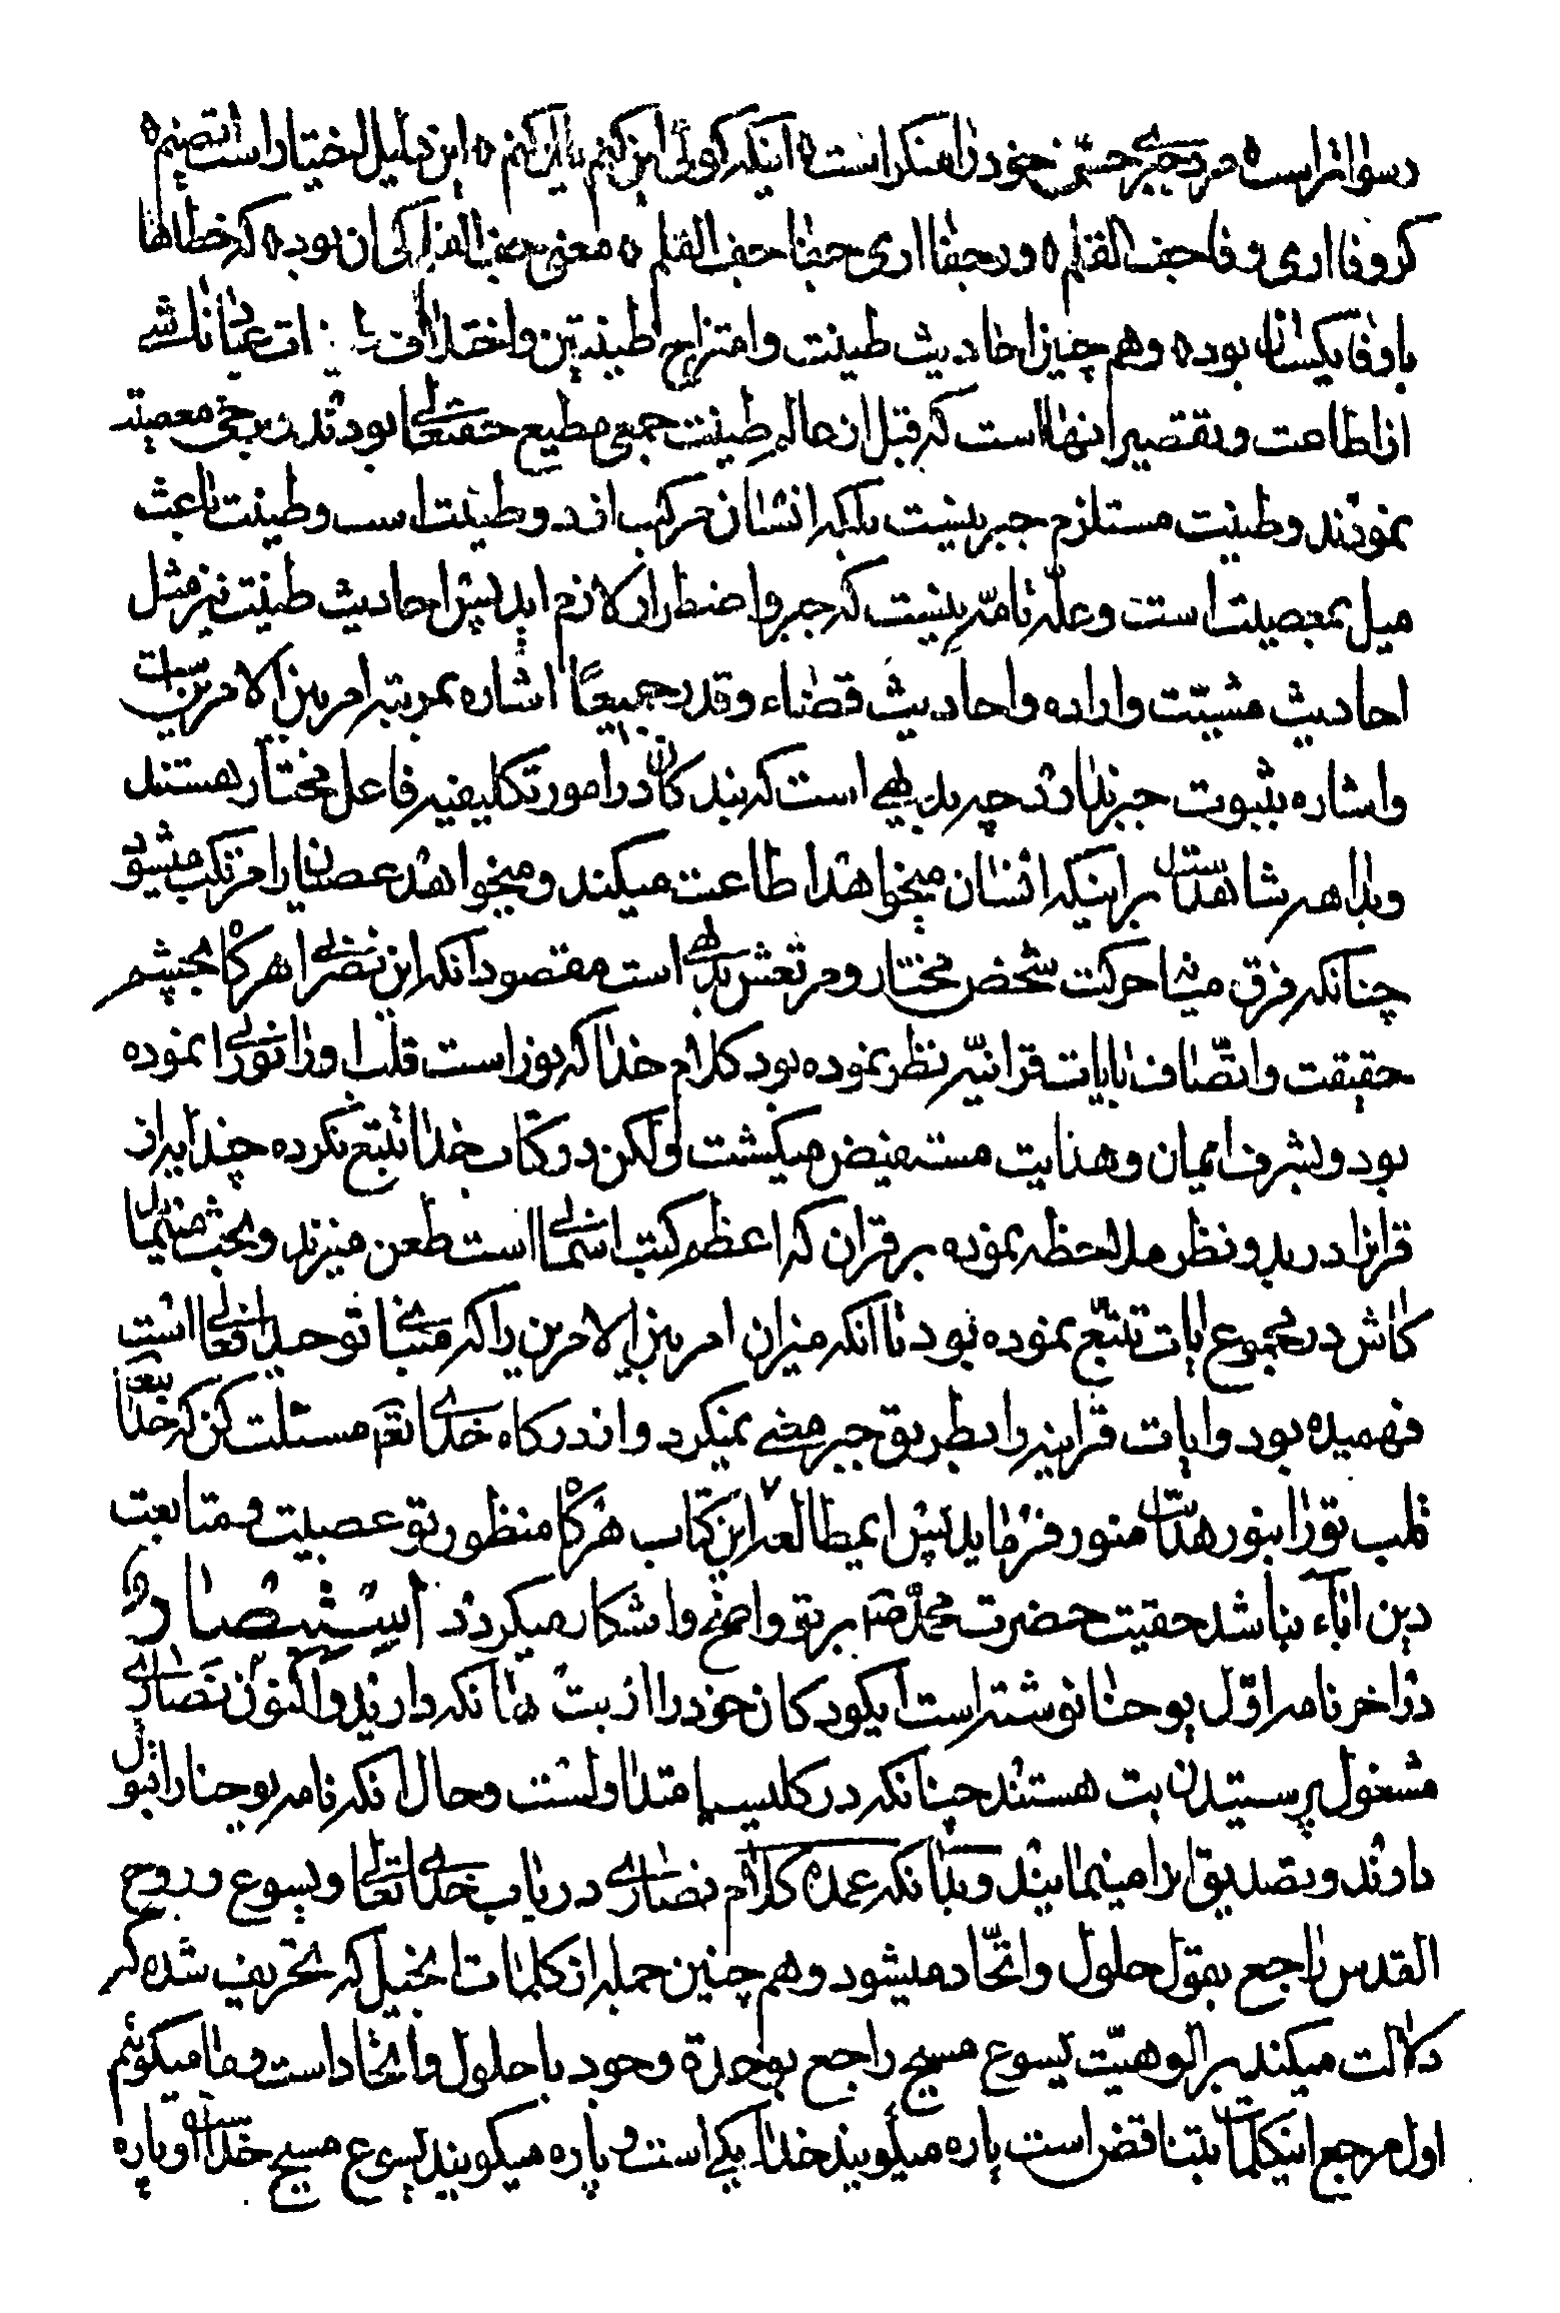 رسواتر است ه مرد جبری حسّ خود را منکر است ه اینکه گوئی این کنم یا آن کنم ه این دلیل اختیار است ای صنم ه
گر وفا اری وفا جف القلم ه ور جفا اری جفا جف القلم ه معنی جف القلم کی ان بود ه که خطاها
با وفا یکسان بود ه وهم چنین احادیث طینت و امتزاج طینتین و اختلاف عباد ناشی
از اطاعت و تقصیر اینها است که قبل از عالم طینت جمعی مطیع حقتعالی بودند و برخی معصیت
نمودند و طینت مستلزم جبر نیست بلکه انسان مرکب از دو طینت است و طینت باعث
میل بمعصیت است و علّه تامّه نیست که جبر و اضطرار لازم اید پس احادیث طینت نیز مثل
احادیث مشیّت و اراده و احادیث قضاء و قدر جمیعًا اشاره بمرتبه امر بین الامرین است
و اشاره بثبوت جبر ندارد چه بدیهی است که بندکان در امور تکلیفیه فاعل مختار هستند
و بداهه شاهد است بر اینکه انسان میخواهد اطاعت میکند و میخواهد عصیان را مرتکب میشود
چنانکه فرق میان حرکت شخص مختار و مرتعش بدیهی است مقصود انکه این نصرانی هرکاه بچشم
حقیقت و انصاف بایات قرانیّه نظر نموده بود کلام خدا که نور است قلب او را نورانی نموده
بود و بشرف ایمان و هدایت مستفیض میکشت و لکن در کتاب خدا تتبع نکرده چند ایه از
قران را در بدو نظر ملاحظه نموده بر قران که اعظم کتب اسمانی است طعن میزند و بحث مینماید
کاش در مجموع ایات تتبّع نموده بود تا انکه میزان امر بین الامرین را که مبنای توحید افعالی است
فهمیده بود و ایات قرانیه را بطریق جبر معنی نمیکرد و از درکاه خدای تعم مسئلت کن که خدا
قلب تو را بنور هدایت منور فرماید پس ایمطالعه این کتاب هرکاه منظور تو عصبیت و متابعت
دین اباء نباشد حقیت حضرت محمّد ص بر تو واضح و اشکار میکردد استبصار
در اخر نامه اوّل یوحنا نوشته است ایکودکان خود را از بت ها نکه دارید و اکنون نصاری
مشغول پرستیدن بت هستند چنانکه در کلیسیا متداولست و حال انکه نامه یوحنا را قبول
دارند و تصدیق انرا مینمایند و بدانکه عمده کلام نصاری در باب خدای تعالی و یسوع و روح
القدس راجع بقول حلول و اتّحاد میشود و هم چنین جمله از کلمات انجیل که تحریف شده که
دلالت میکند بر الوهیّت یسوع مسیح راجع بوحدة وجود با حلول و اتحاد است و ما میکوئیم
اول مرجع اینکلمات بتناقض است پاره میکویند خدا یکی است و پاره میکویند یسوع مسیح خدا است و پاره